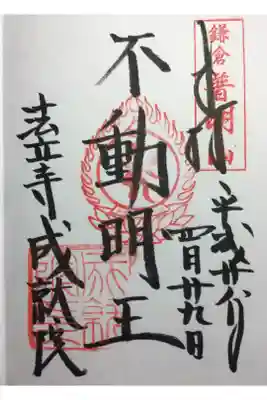 鎌倉 普明山
奉拝
平成廿八年
四月廿九日
不動明王
法立寺 成就院